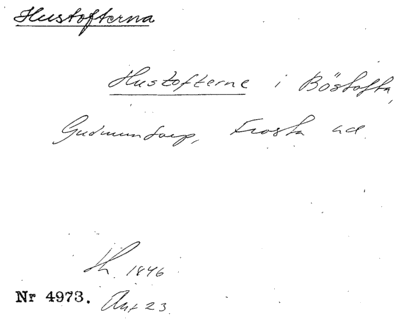 Hustofterna
Hustofterne i Böstofta,
Gudmuntorp, Frosta hd.
1846
Nr 4973.
23